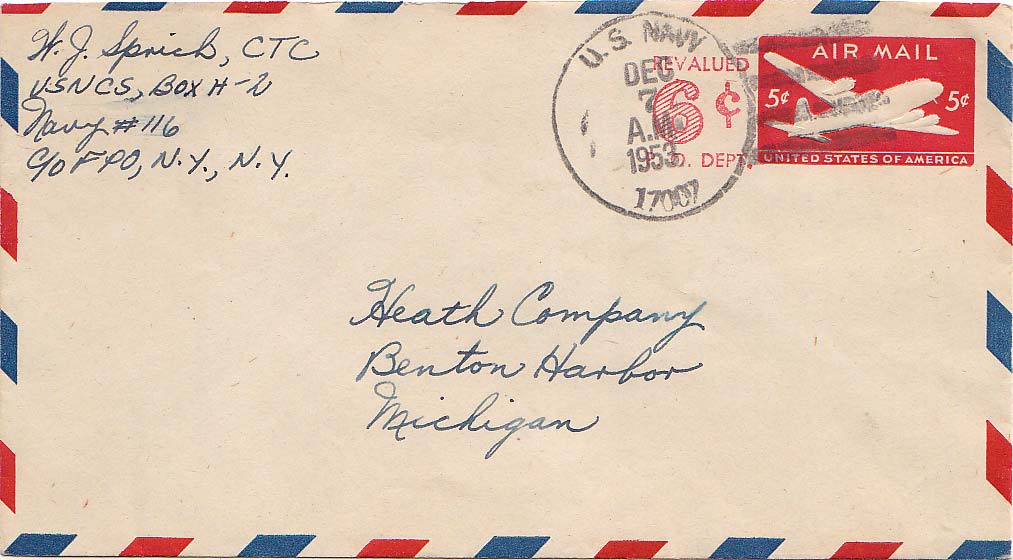 W. J. Sprich, CTC
USNCS, Box H-2
Navy #116
C/o FPO, N.Y., N.Y.
U.S. NAVY
DEC
7
A.M.
1953
17007
REVALUED
6¢
P.O. DEPT.
AIR MAIL
5¢ 5¢
UNITED STATES OF AMERICA
Heath Company
Benton Harbor
Michigan